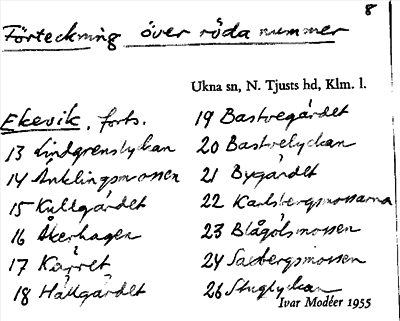 8
Förteckning över röda nummer
Ukna sn, N. Tjusts hd, Klm. l.
Ekevik, forts.
13 Lindgrenslyckan
14 Anklingsmossen
15 Kullgärdet
16 Åkerhagen
17 Kärret
18 Hällgärdet
19 Bastvegärdet
20 Bastvelyckan
21 Bygärdet
22 Karlsbergsmossarna
23 Blågölsmossen
24 Saxbergsmossen
26 Stuglyckan
Ivar Modéer 1955